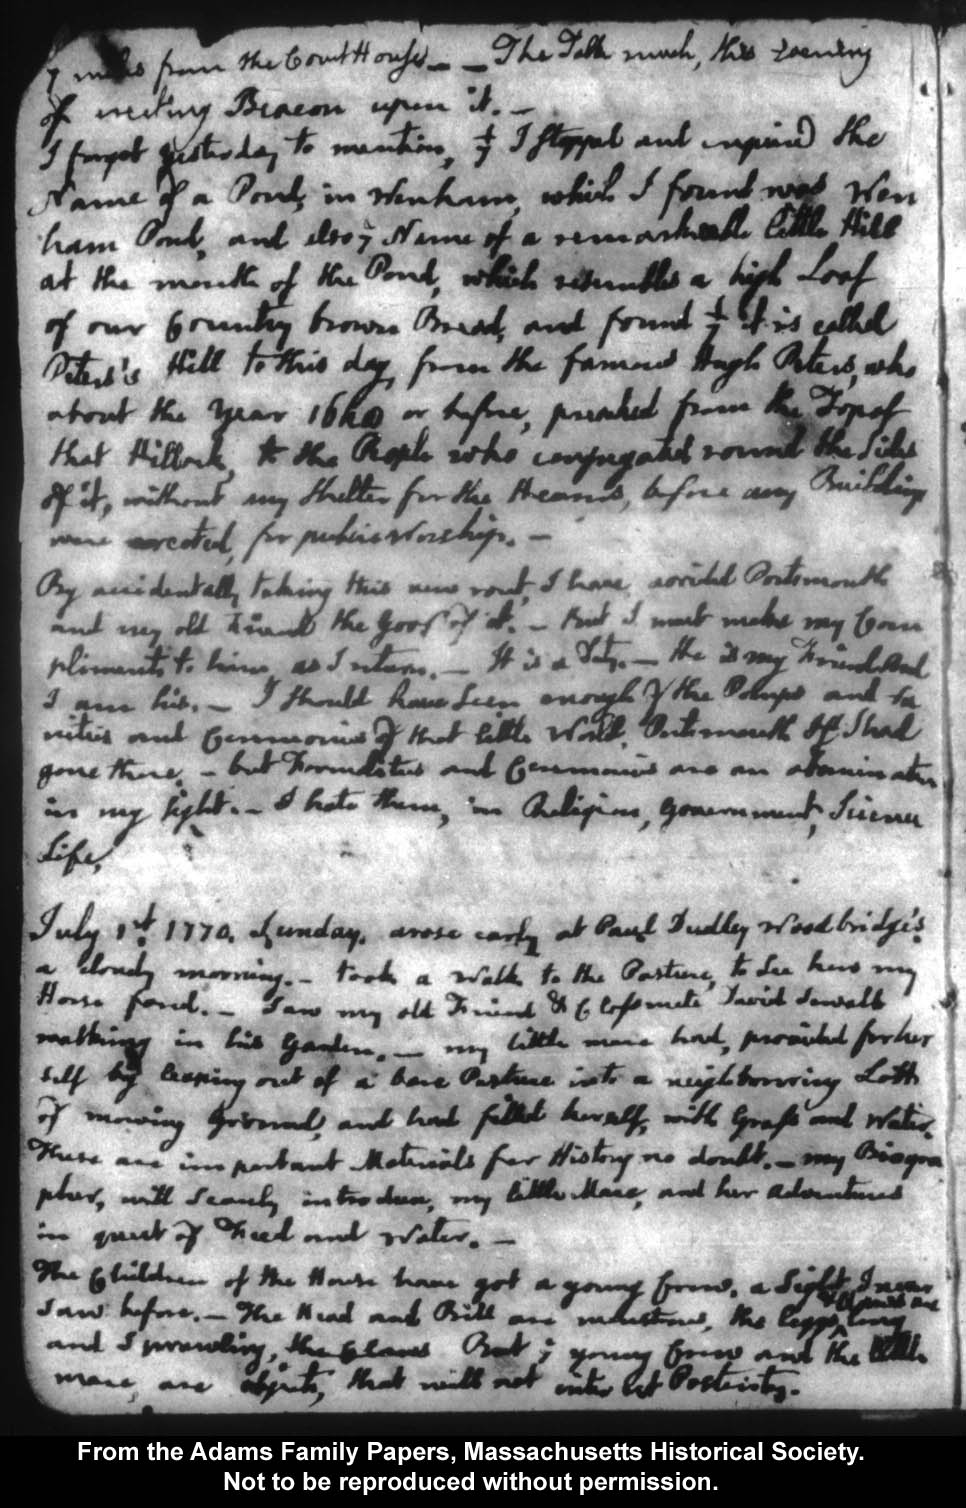 7 miles from the Court House. — — The Talk much, this Evening
of erecting Beacon upon it. —
I forgot yesterday to mention, yt I stopped and inquired the
Name of a Pond, in Wenham, which I found was Wen
ham Pond, and also ye Name of a remarkable little Hill
at the mouth of the Pond, which resembles a high Loaf
of our Country brown Bread, and found yt it is called
Peters's Hill to this day, from the famous Hugh Peters, who
about the Year 1640 or before, preached from the Top of
that Hillock, to the People who congregated round the Sides
of it, without any Shelter for the Hearers, before any Buildings
were erected, for public Worship. —
By accidentally taking this new rout, I have avoided Portsmouth
and my old Friend the Govr of it. — But I must make my Com
pliments to him, as I return. — It is a Duty. — He is my Friend and
I am his. — I should have seen enough of the Pomps and Va
nities and Ceremonies of that little World, Portsmouth If I had
gone there, — but Formalities and Ceremonies are an abomination
in my sight. — I hate them, in Religion, Government, Science
Life.
July 1st. 1770. Sunday. arose early at Paul Dudley Woodbridge's.
a cloudy morning. — took a Walk to the Pasture, to see how my
Horse fared. — Saw my old Friend & Classmate David Sewall
walking in his Garden. — my little mare had, provided for her
self by leaping out of a bare Pasture into a neighbouring Lott
of mowing Ground, and had filled herself, with Grass and Water.
These are important Materials for History no doubt. — my Biogra
pher, will scarcely introduce, my little Mare, and her Adventures
in quest of Feed and Water. —
The Children of the House have got a young Crow, a Sight I never
saw before. — The Head and Bill are monstrous, the leggs
& Claws are
long
and sprawling, the Claws But ye young Crow and the little
mare, are objects, that will not interest Posterity.
From the Adams Family Papers, Massachusetts Historical Society.
Not to be reproduced without permission.